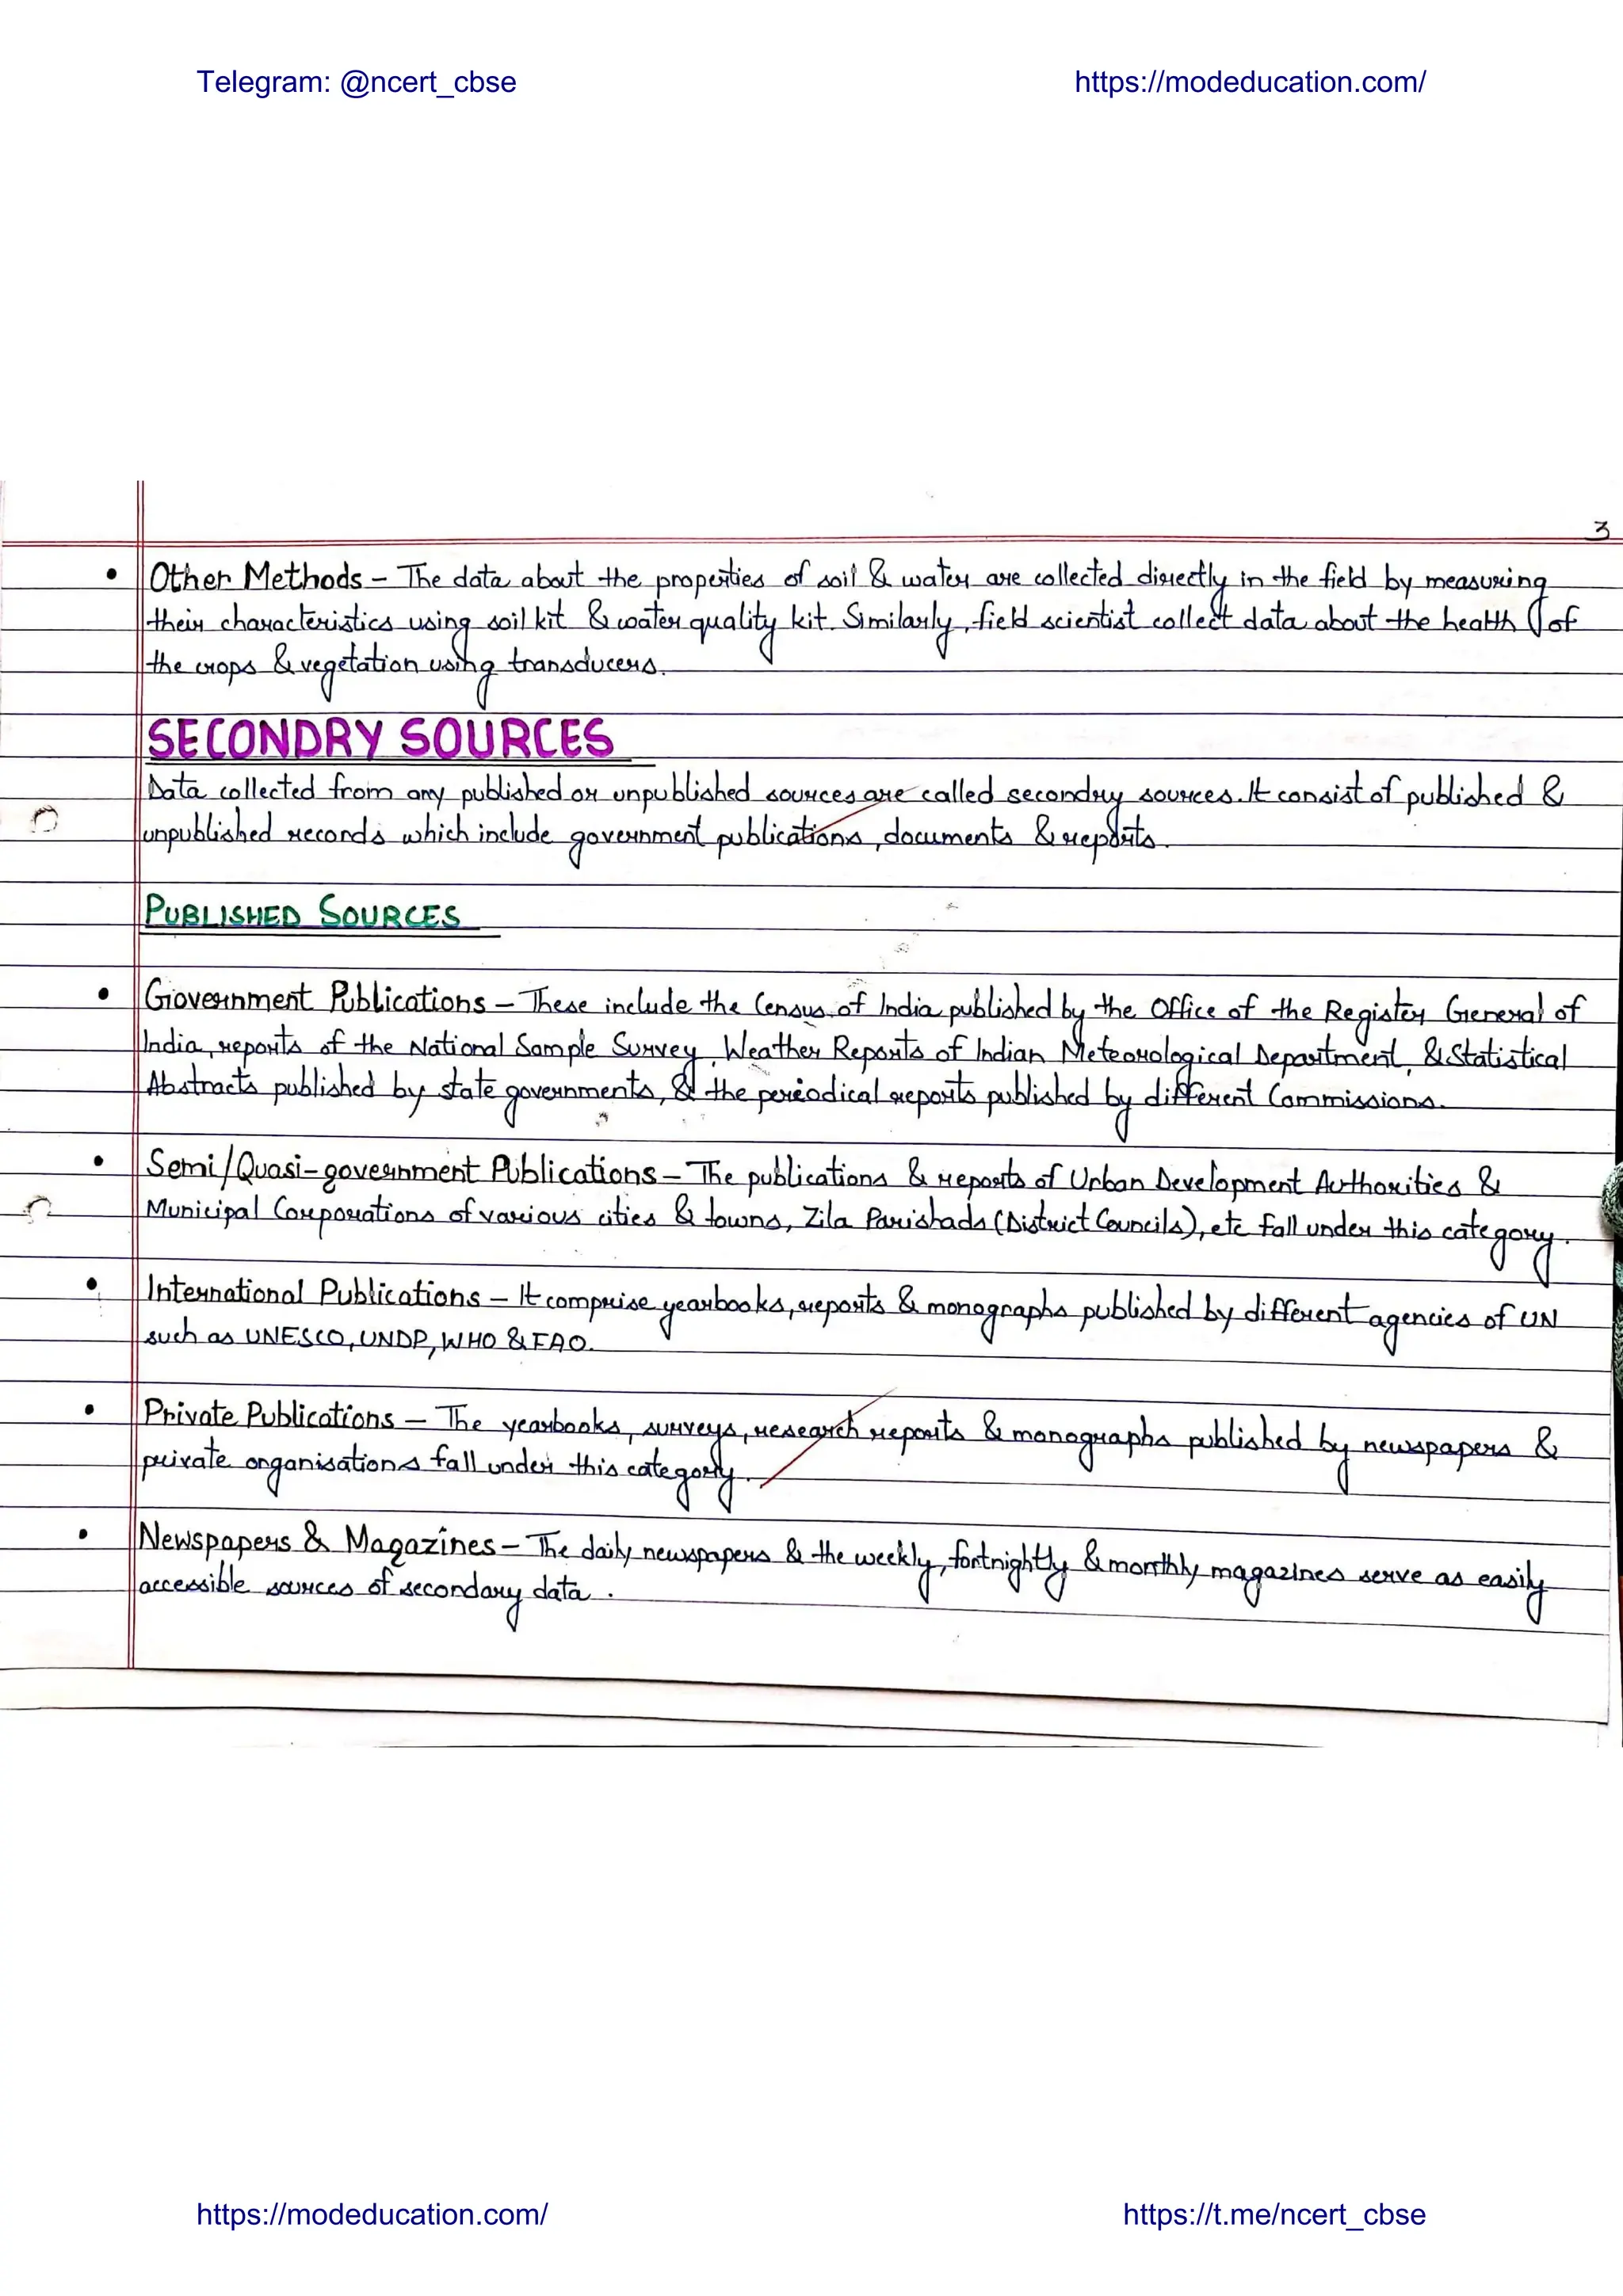 Telegram: @ncert_cbse https://modeducation.com/
3
• Other Methods - The data about the properties of soil & water are collected directly in the field by measuring
their characteristics using soil kit & water quality kit. Similarly, field scientist collect data about the health of
the crops & vegetation using transducers.
SECONDRY SOURCES
Data collected from any published or unpublished sources are called secondry sources. It consist of published &
unpublished records which include government publications, documents & reports.
PUBLISHED SOURCES
• Government Publications - These include the Census of India published by the Office of the Register General of
India, reports of the National Sample Survey, Weather Reports of Indian Meteorological Department, & Statistical
Abstracts published by state governments, & the periodical reports published by different Commissions.
• Semi/Quasi-government Publications - The publications & reports of Urban Development Authorities &
Municipal Corporations of various cities & towns, Zila Parishads (District Councils), etc fall under this category.
• International Publications - It comprise yearbooks, reports & monographs published by different agencies of UN
such as UNESCO, UNDP, WHO & FAO.
• Private Publications - The yearbooks, surveys, research reports & monographs published by newspapers &
private organisations fall under this category.
• Newspapers & Magazines - The daily newspapers & the weekly, fortnightly & monthly magazines serve as easily
accessible sources of secondary data.
https://modeducation.com/ https://t.me/ncert_cbse